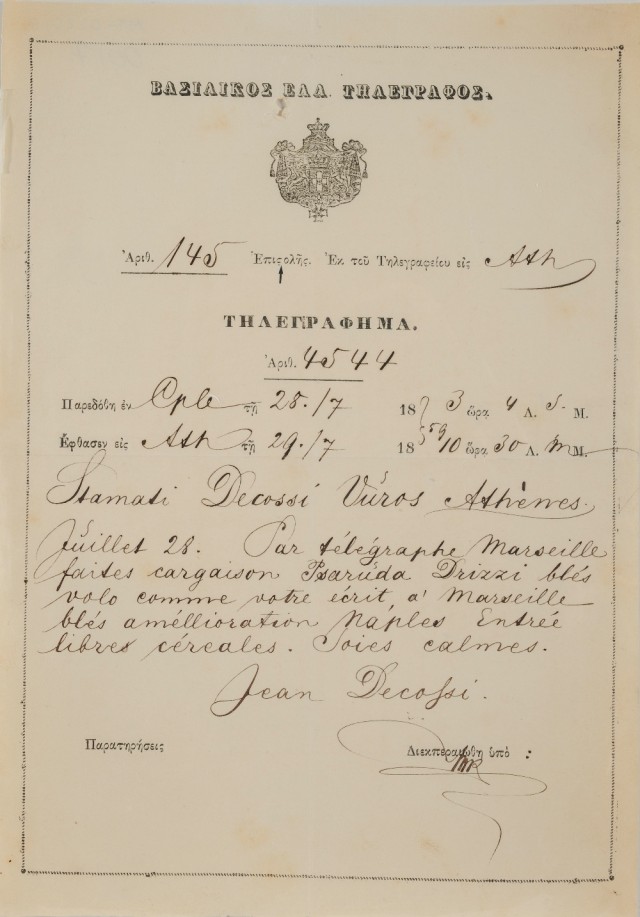 ΒΑΣΙΛΙΚΟΣ ΕΛΛ. ΤΗΛΕΓΡΑΦΟΣ.
Ἀριθ. 145 Ἐπιϛολῆς. Ἐκ τοῦ Τηλεγραφείου εἰς Ath
ΤΗΛΕΓΡΑΦΗΜΑ.
Ἀριθ. 4544
Παρεδόθη ἐν Cple τῇ 28./7 18 3 ὥρᾳ 4 Λ. s. Μ.
Ἔφθασεν εἰς Ath τῇ 29./7 1859 10 ὥρᾳ 30 Λ. m Μ.
Stamati Decossi Vúros Athènes.
Juillet 28. Par télégraphe Marseille
faites cargaison Drizzi blés
volo comme votre écrit, a' Marseille
blés améllioration Naples Entreé
libres céreales. Soies calmes.
Jean Decossi.
Παρατηρήσεις
Διεκπεραιώθη ὑπὸ :